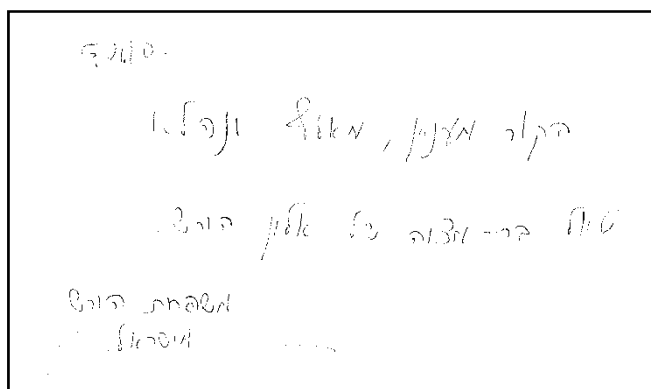 ביקור מענין, מאלף ונהלנו
טיול בר-מצוה של אלון הורש.
משפחת הורש
מישראל.